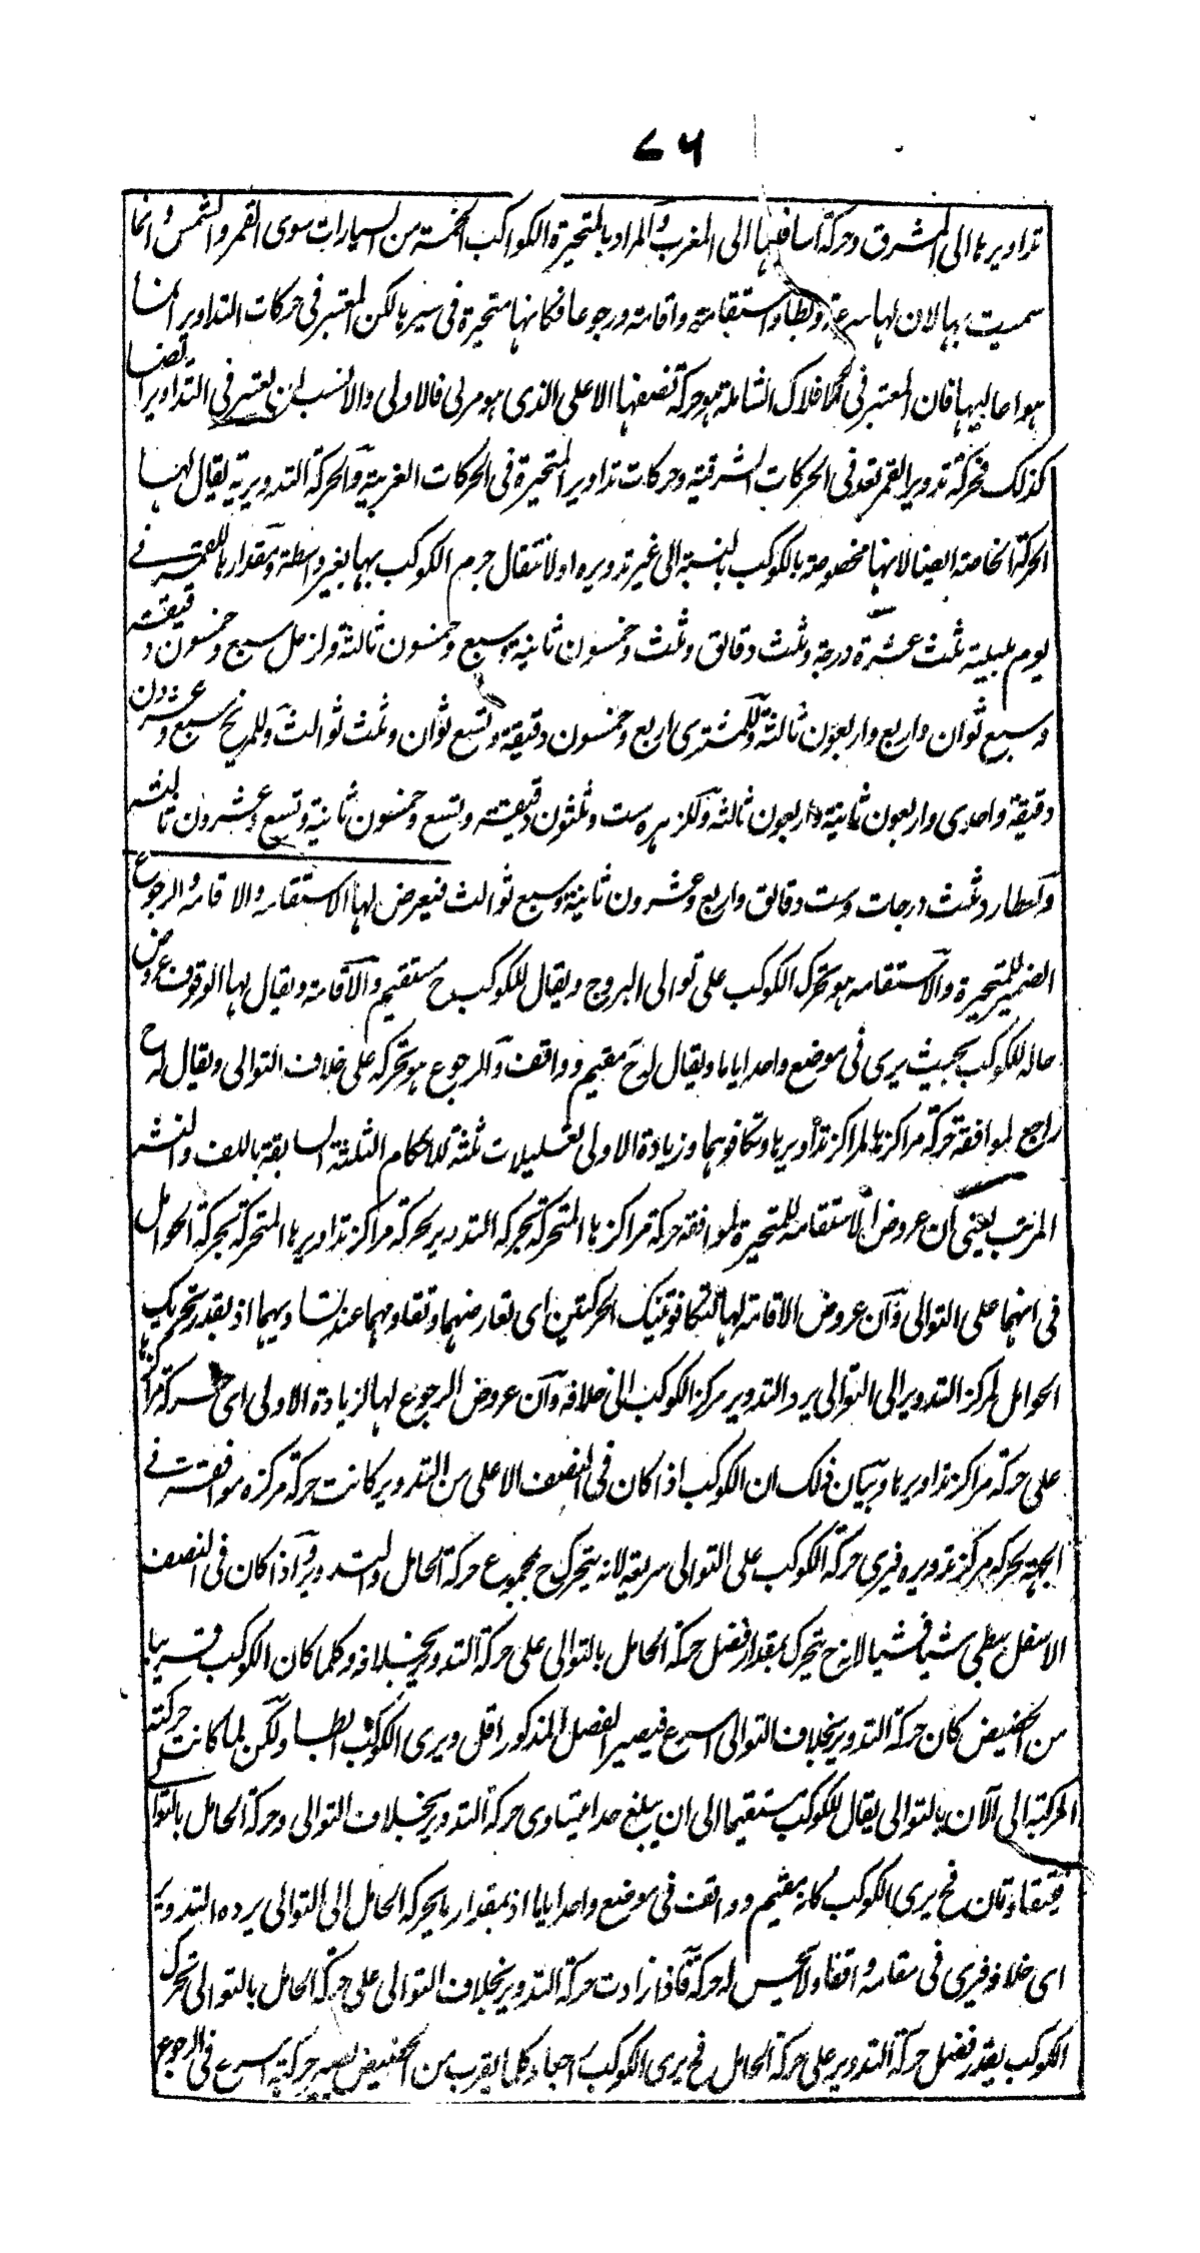 ٧٦
تداويرها الى المشرق وحركة اسافلها الى المغرب والمراد بالمتحيرة الكواكب الخمسة من السيارات سوى القمر والشمس وانما
سميت بها لان لها سرعة وبطأ واستقامة واقامة ورجوعا فكانها متحيرة فى سيرها لكن المعتبر فى حركات التداوير انما
هو اعاليها فان المعتبر فى الافلاك الشاملة هو حركة نصفها الاعلى الذى هو مرئى فالاولى والانسب ان يعتبر فى التداوير ايضا
كذلك فحركة تدوير القمر تعد فى الحركات الشرقية وحركات تداوير المتحيرة فى الحركات الغربية والحركة التدويرية يقال لها
الحركة الخاصة ايضا لانها مخصوصة بالكوكب بالنسبة الى غير تدويره او لانتقال جرم الكوكب بها بغير واسطة ومقدارها للقمر فے
يوم بليلته ثلث عشرة درجة وثلث دقائق وثلث وخمسون ثانية وسبع وخمسون ثالثة ولزحل سبع وخمسون دقيقة
وسبع ثوان واربع واربعون ثالثة وللمشترى اربع وخمسون دقيقة وتسع ثوان وثلث ثوالث وللمريخ سبع وعشرون
دقيقة واحدى واربعون ثانية واربعون ثالثة وللزهره ست وثلثون دقيقة وتسع وخمسون ثانية وتسع وعشرون ثالثة
ولعطارد ثلث درجات وست دقائق واربع وعشرون ثانية وسبع ثوالث فيعرض لها الاستقامه والاقامة والرجوع
الضمير للمتحيرة والاستقامه هو تحرك الكوكب على توالى البروج ويقال للكوكب ح مستقيم والاقامة ويقال لها الوقوف عروض
حاله للكوكب بحيث يرى فى موضع واحد اياما ويقال له ح مقيم وواقف والرجوع هو تحركه على خلاف التوالى ويقال له ح
راجع لموافقة حركة مراكزها لمراكز تداويرها وتكافوهما وزيادة الاولى تعليلات ثلثة للاحكام الثلثة السابقة باللف والنشر
المرتب يعنى ان عروض الاستقامه للمتحيرة لموافقة حركة مراكزها المتحركة بحركة التدوير بحركة مراكز تداويرها المتحركة بحركة الحوامل
فى انهما على التوالى وان عروض الاقامة لها لتكافو تينك الحركتين اى تعارضهما وتقاومهما عند تساويهما اذ بقدر تحريك
الحوامل لمركز التدوير الى التوالى يرد التدوير مركز الكوكب الى خلافه وان عروض الرجوع لها لزيادة الاولى اى حركة مراكزها
على حركة مراكز تداويرها وبيان ذلك ان الكوكب اذا كان فى النصف الاعلى من التدوير كانت حركة مركزه موافقة فے
الجهة بحركة مركز تدويره فيرى حركة الكوكب على التوالى سريعة لانه يتحرك ح مجموع حركة الحامل والتدوير واذا كان فى النصف
الاسفل يبطى شيئا فشيئا لانه ح يتحرك بمقدار فضل حركة الحامل بالتوالى على حركة التدوير بخلافه وكلما كان الكوكب قريبا
من الحضيض كان حركة التدوير بخلاف التوالى اسرع فيصير الفضل المذكور اقل ويرى الكوكب ابطأ ولكن لما كانت حركته
المركبة الى الآن بالتوالى يقال للكوكب مستقيما الى ان يبلغ حدا يتساوى حركة التدوير بخلاف التوالى وحركة الحامل بالتوالى
فيتقاومان فح يرى الكوكب كانه مقيم وواقف فى موضع واحد اياما اذ بمقدار ما يحركه الحامل الى التوالى يرده التدوير
اى خلافه فيرى فى مقامه واقفا ولا يحس له حركة فاذا زادت حركة التدوير بخلاف التوالى على حركة الحامل بالتوالى تحرك
الكوكب بقدر فضل حركة التدوير على حركة الحامل فح يرى الكوكب راجعا وكلما يقرب من الحضيض يصير حركته اسرع فى الرجوع